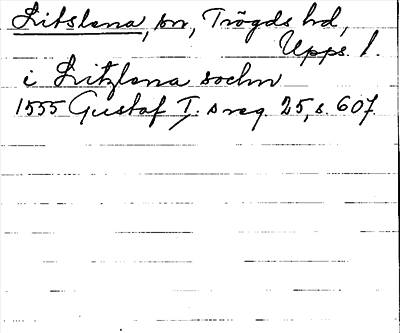 Litslena, sn, Trögds hd,
Upps. l.
i Litzlena sochn
1555 Gustaf I:s reg. 25, s. 607.